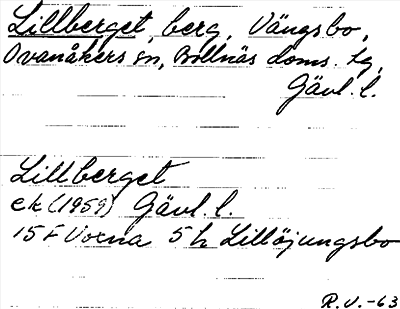 Lillberget, berg, Vängsbo,
Ovanåkers sn, Bollnäs doms. lg,
Gävl. l.
Lillberget
ek (1959) Gävl. l.
15 F Voxna 5 h Lillöjungsbo
R.V.-63